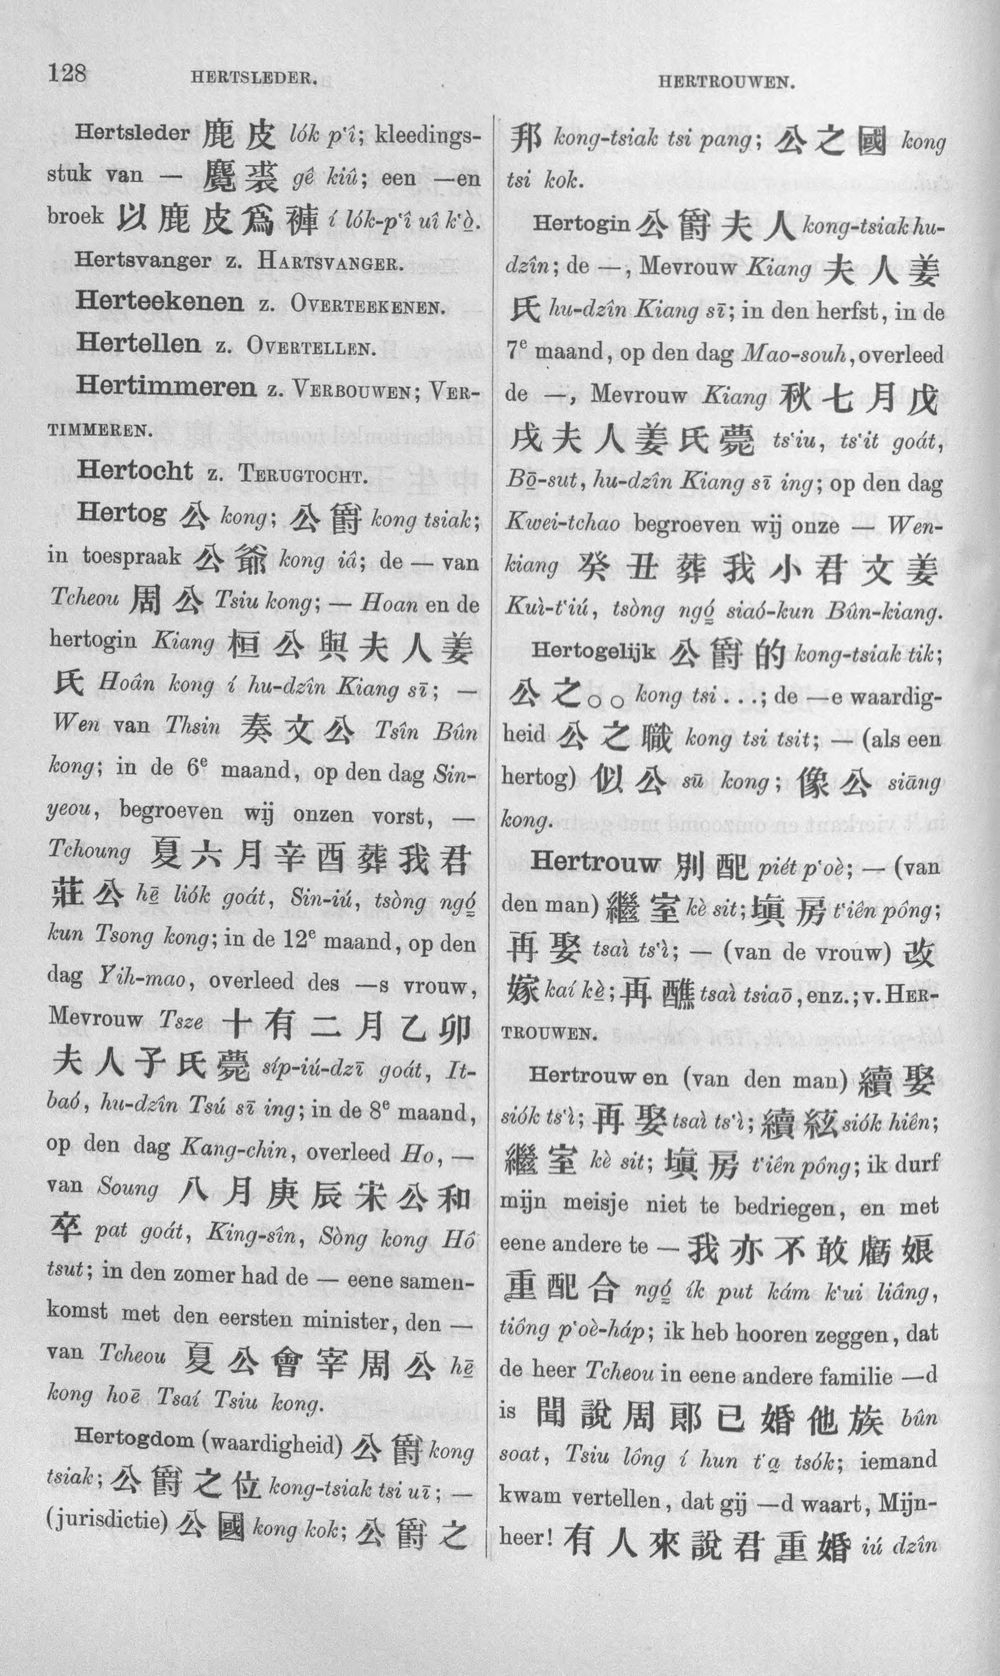 128
HERTSLEDER.
HERTROUWEN.
Hertsleder 鹿皮 lók p‘î; kleedings-
stuk van — 麑裘 gê kiû; een —en
broek 以鹿皮爲褲 í lók-p‘î uî k‘ò̤.
Hertsvanger z. HARTSVANGER.
Herteekenen z. OVERTEEKENEN.
Hertellen z. OVERTELLEN.
Hertimmeren z. VERBOUWEN; VER-
TIMMEREN.
Hertocht z. TERUGTOCHT.
Hertog 公 kong; 公爵 kong tsiak;
in toespraak 公爺 kong iâ; de — van
Tcheou 周公 Tsiu kong; — Hoan en de
hertogin Kiang 桓公與夫人姜
氏 Hoân kong í hu-dzîn Kiang sī; —
Wen van Thsin 秦文公 Tsîn Bûn
kong; in de 6e maand, op den dag Sin-
yeou, begroeven wij onzen vorst, —
Tchoung 夏六月辛酉葬我君
莊公 hē liók goát, Sin-iú, tsòng ngó̤
kun Tsong kong; in de 12e maand, op den
dag Yih-mao, overleed des —s vrouw,
Mevrouw Tsze 十有二月乙卯
夫人子氏薨 síp-iú-dzī goát, It-
baó, hu-dzîn Tsú sī ing; in de 8e maand,
op den dag Kang-chin, overleed Ho, —
van Soung 八月庚辰宋公和
卒 pat goát, King-sîn, Sòng kong Hô
tsut; in den zomer had de — eene samen-
komst met den eersten minister, den —
van Tcheou 夏公會宰周公 hē
kong hoē Tsaí Tsiu kong.
Hertogdom (waardigheid) 公爵 kong
tsiak; 公爵之位 kong-tsiak tsi uī; —
(jurisdictie) 公國 kong kok; 公爵之
邦 kong-tsiak tsi pang; 公之國 kong
tsi kok.
Hertogin 公爵夫人 kong-tsiak hu-
dzîn; de —, Mevrouw Kiang 夫人姜
氏 hu-dzîn Kiang sī; in den herfst, in de
7e maand, op den dag Mao-souh, overleed
de —, Mevrouw Kiang 秋七月戊
戌夫人姜氏薨 ts‘iu, ts‘it goát,
Bō̤-sut, hu-dzîn Kiang sī ing; op den dag
Kwei-tchao begroeven wij onze — Wen-
kiang 癸丑葬我小君文姜
Kuì-t‘iú, tsòng ngó̤ siaó-kun Bûn-kiang.
Hertogelijk 公爵的 kong-tsiak tik;
公之○○ kong tsi . . .; de —e waardig-
heid 公之職 kong tsi tsit; — (als een
hertog) 似公 sū kong; 像公 siāng
kong.
Hertrouw 別配 piét p‘oè; — (van
den man) 繼室 kè sit; 塡房 t‘iên pông;
再娶 tsaì ts‘ì; — (van de vrouw) 改
嫁 kaí kè̤; 再醮 tsaì tsiaō, enz.; v. HER-
TROUWEN.
Hertrouwen (van den man) 續娶
siók ts‘ì; 再娶 tsaì ts‘ì; 續絃 siók hiên;
繼室 kè sit; 塡房 t‘iên pông; ik durf
mijn meisje niet te bedriegen, en met
eene andere te — 我亦不敢虧娘
重配合 ngó̤ ík put kám k‘ui liâng,
tiông p‘oè-háp; ik heb hooren zeggen, dat
de heer Tcheou in eene andere familie —d
is 聞說周郞已婚他族 bûn
soat, Tsiu lông í hun t‘a̤ tsók; iemand
kwam vertellen, dat gij —d waart, Mijn-
heer! 有人來說君重婚 iú dzîn